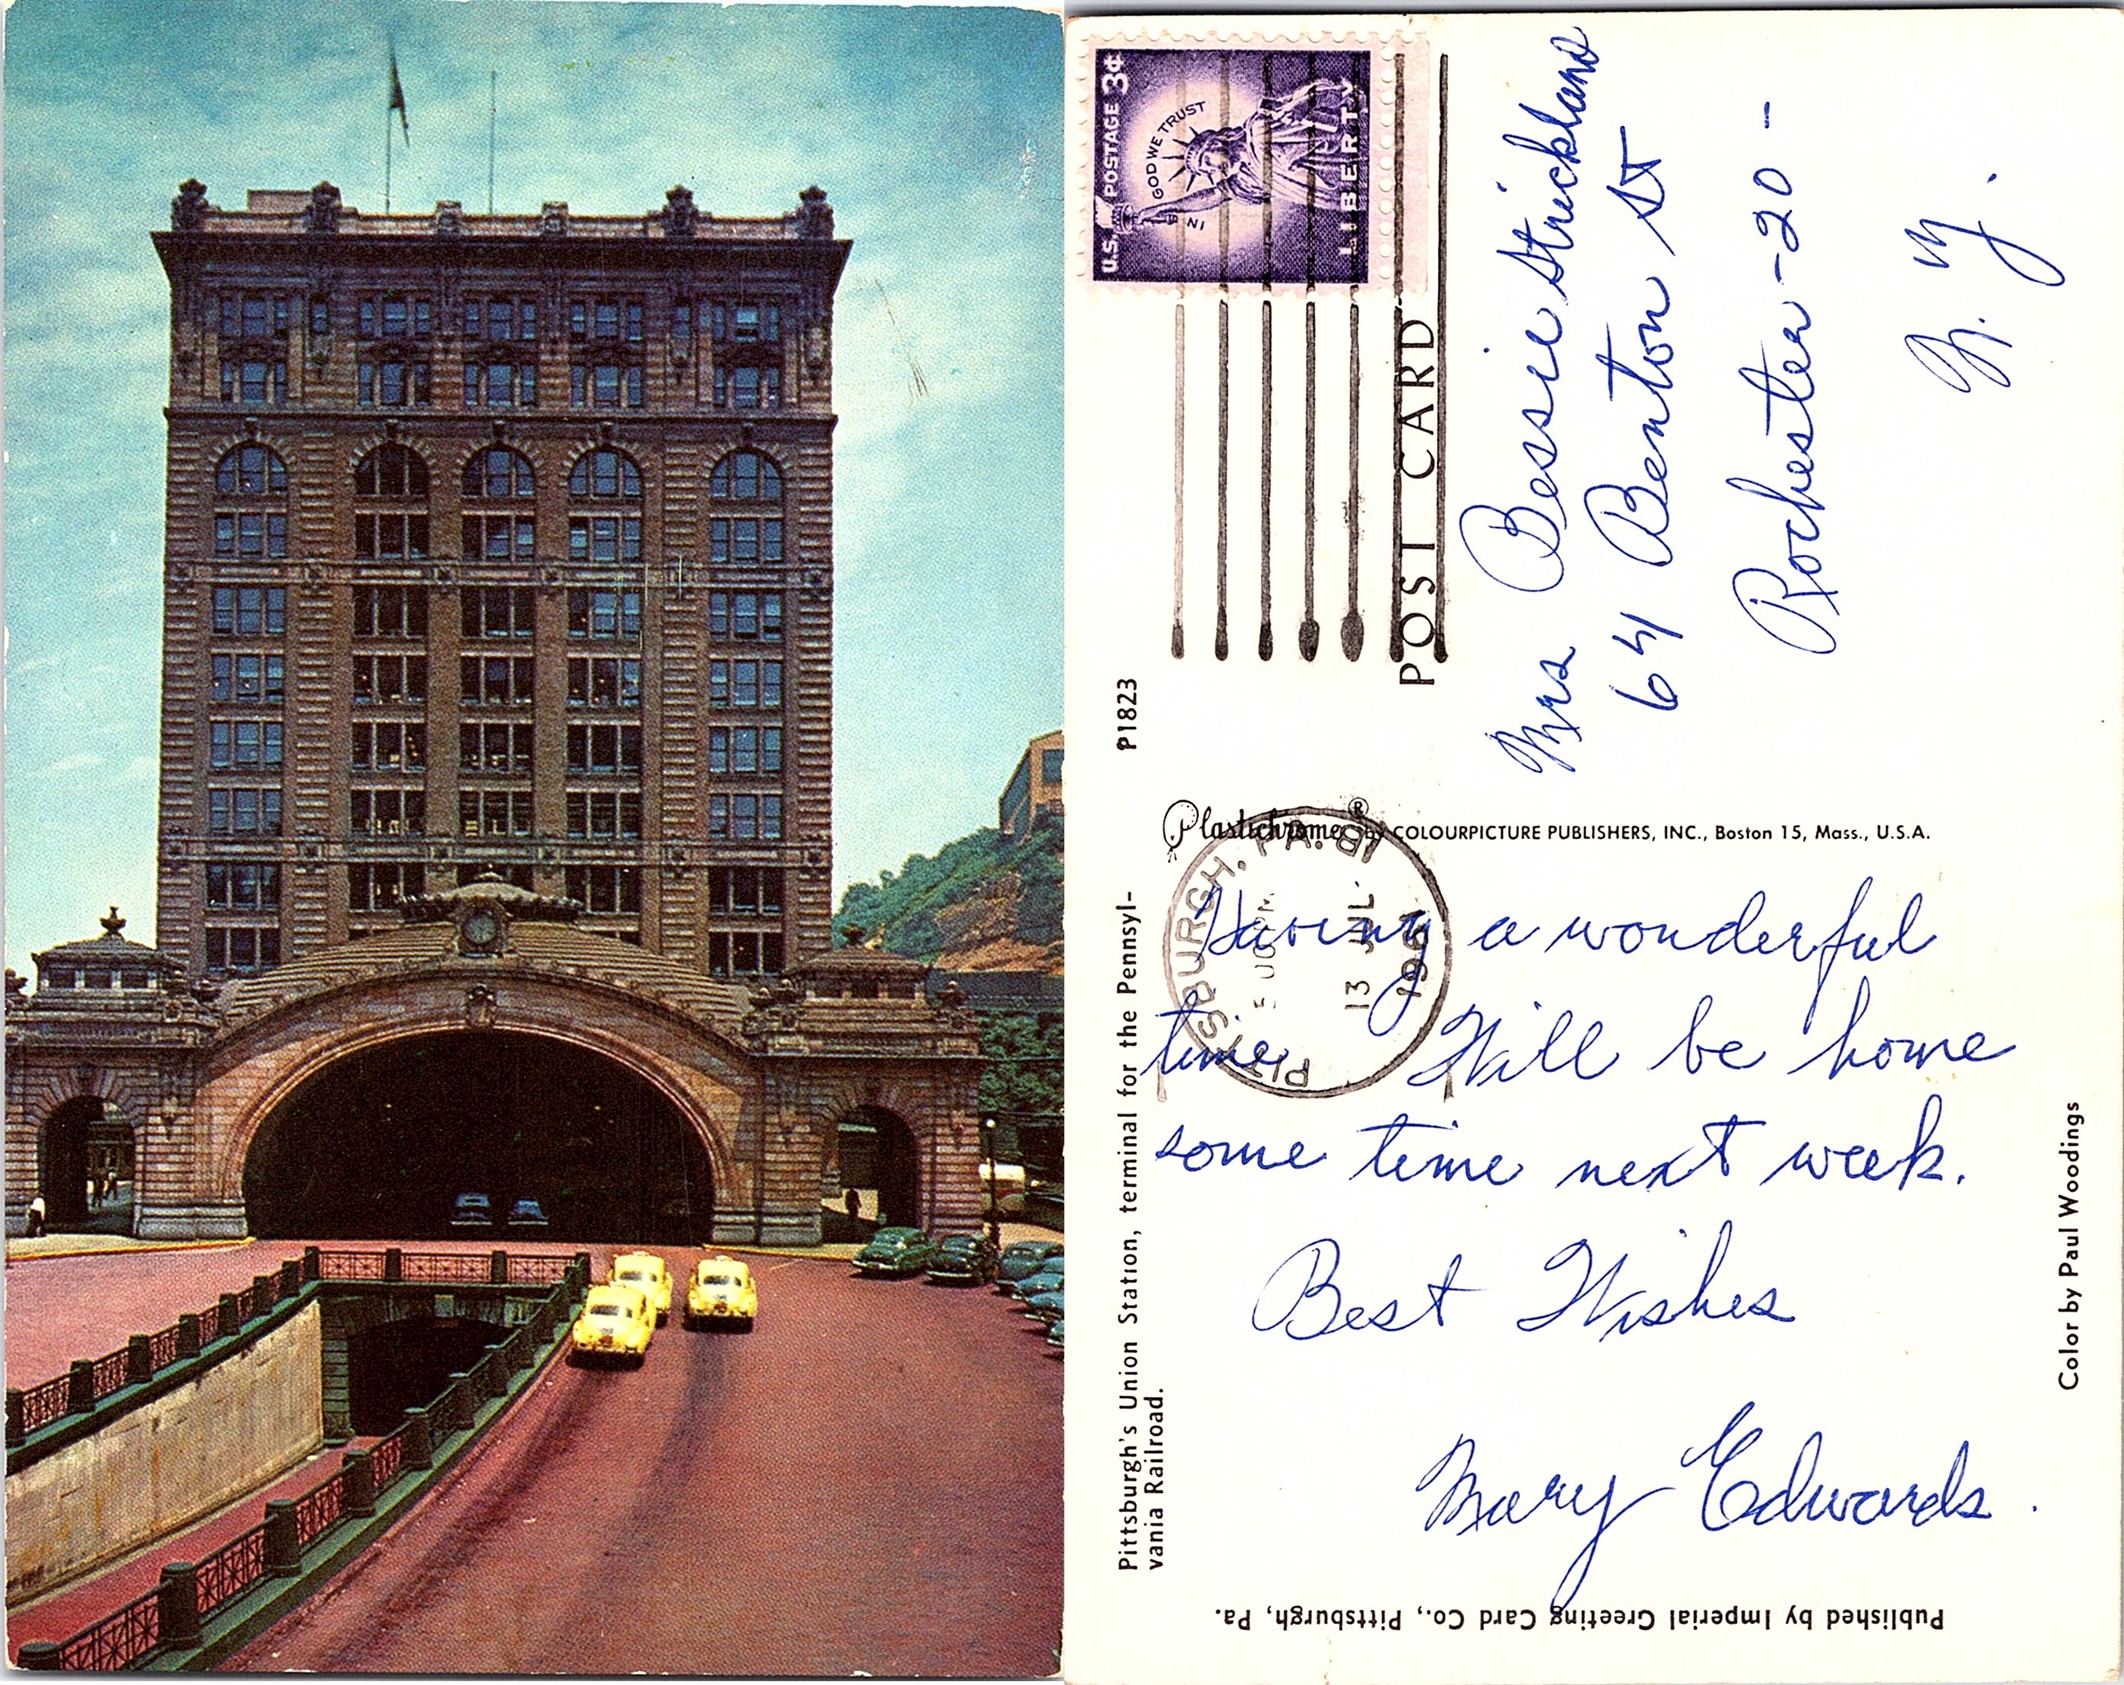 U.S. POSTAGE 3¢
IN GOD WE TRUST
LIBERTY
POST CARD
P1823
Mrs Bessie Strickland
64 Benton St
Rochester-20-
N.Y.
Plastichrome® by COLOURPICTURE PUBLISHERS, INC., Boston 15, Mass., U.S.A.
PITTSBURGH, PA.
13 JUL
Having a wonderful
time. Will be home
some time next week.
Best Wishes
Mary Edwards.
Pittsburgh's Union Station, terminal for the Pennsyl-
vania Railroad.
Color by Paul Woodings
Published by Imperial Greeting Card Co., Pittsburgh, Pa.